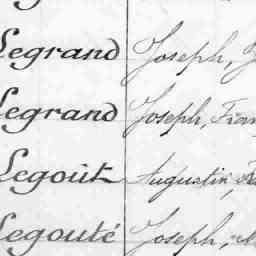 Legrand Joseph,
Legrand Joseph, Fran
Legoût Augustin,
Legouté Joseph,